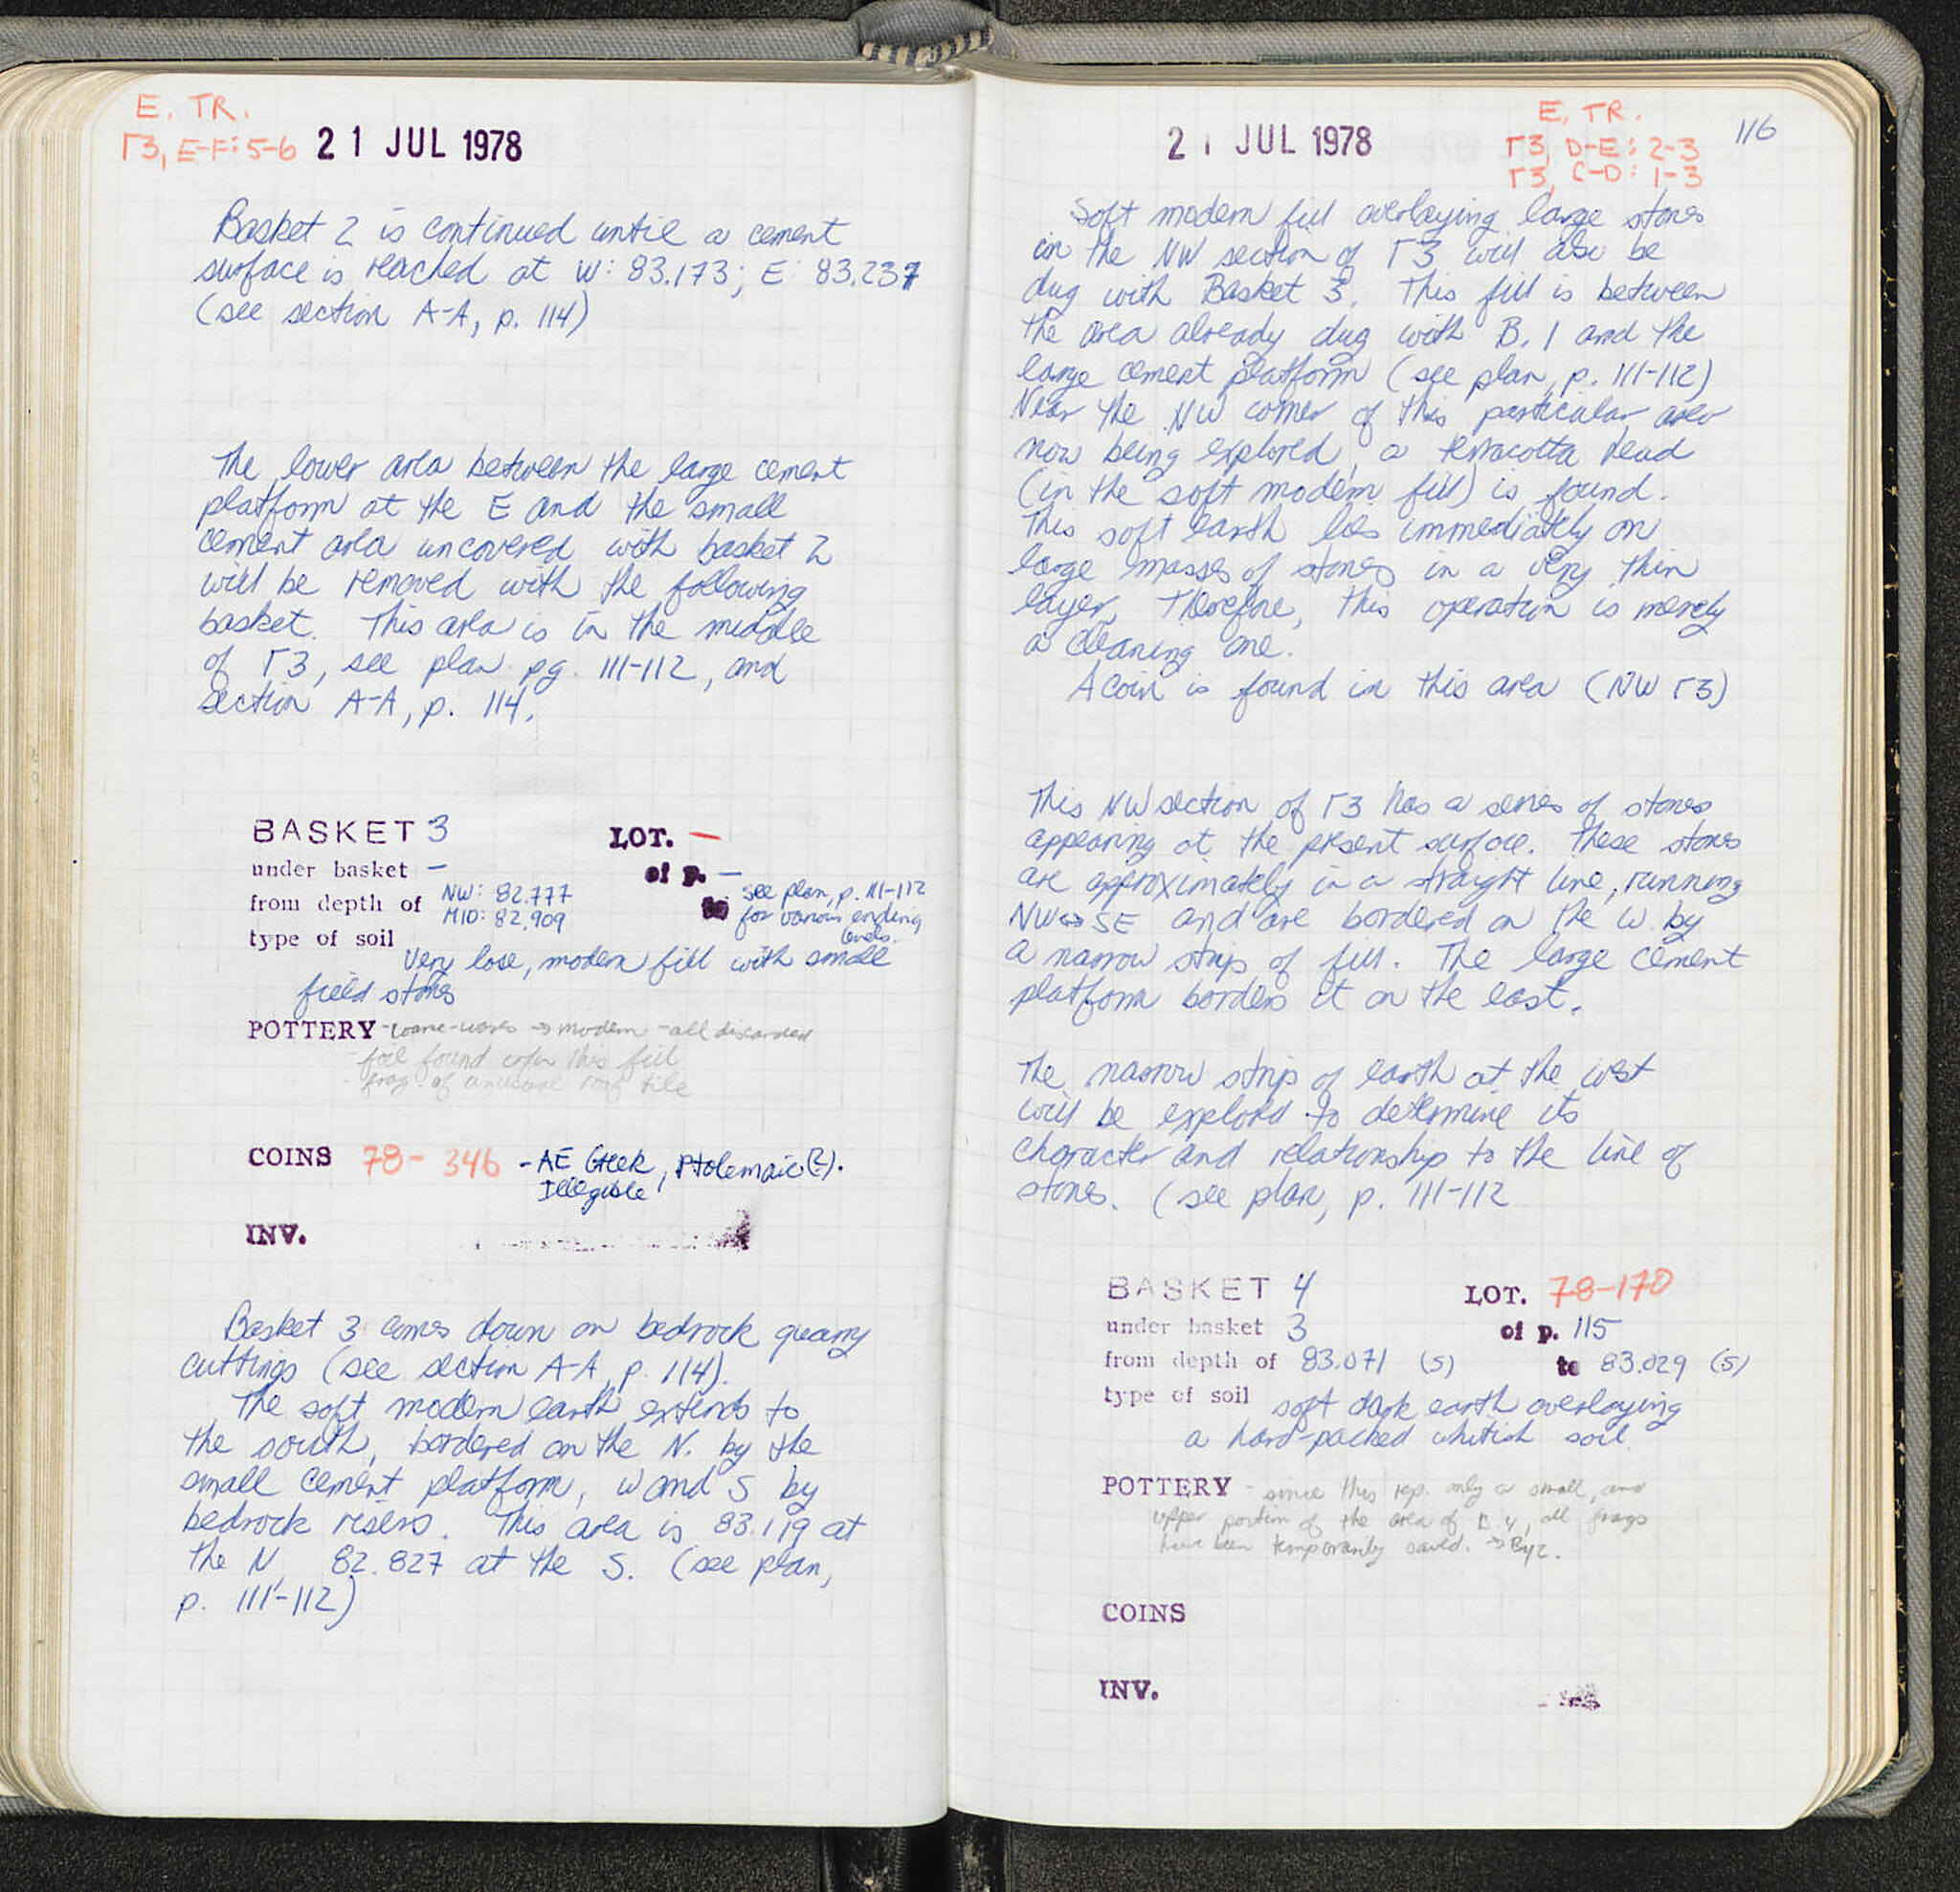 E. TR.
Γ3, E-F: 5-6 21 JUL 1978
Basket 2 is continued until a cement
surface is reached at W: 83.173; E: 83.237
(see section A-A, p. 114)
The lower area between the large cement
platform at the E and the small
cement area uncovered with basket 2
will be removed with the following
basket. This area is in the middle
of Γ3, see plan pg. 111-112, and
section A-A, p. 114.
BASKET 3 LOT. —
under basket — of p. —
from depth of NW: 82.777 MID: 82.909 to see plan, p. 111-112 for various ending levels.
type of soil very lose, modern fill with small
field stones
POTTERY - coarse-wares → modern - all discarded
- foil found w/in this fill
- frag of unusual roof tile
COINS 78-346 - AE Greek, Ptolemaic(?).
Illegible
INV.
Basket 3 comes down on bedrock quarry
cuttings (see section A-A, p. 114).
The soft modern earth extends to
the south, bordered on the N. by the
small cement platform, W and S by
bedrock risers. This area is 83.119 at
the N, 82.827 at the S. (see plan,
p. 111-112)
E. TR.
116
21 JUL 1978 Γ3, D-E: 2-3
Γ3, C-D: 1-3
Soft modern fill overlaying large stones
in the NW section of Γ3 will also be
dug with Basket 3. This fill is between
the area already dug with B. 1 and the
large cement platform (see plan, p. 111-112)
Near the NW corner of this particular area
now being explored, a terracotta head
(in the soft modern fill) is found.
This soft earth lies immediately on
large masses of stones in a very thin
layer, Therefore, this operation is merely
a cleaning one.
A coin is found in this area (NW Γ3)
This NW section of Γ3 has a series of stones
appearing at the present surface. These stones
are approximately in a straight line, running
NW↔SE and are bordered on the W by
a narrow strip of fill. The large cement
platform borders it on the east.
The narrow strip of earth at the west
will be explord to determine its
character and relationship to the line of
stones. (see plan, p. 111-112
BASKET 4 LOT. 78-170
under basket 3 of p. 115
from depth of 83.071 (S) to 83.029 (S)
type of soil soft dark earth overlaying
a hard-packed whitish soil.
POTTERY - since this rep. only a small, and
upper portion of the area of B. 4, all frags
have been temporarily saved. → Byz.
COINS
INV.